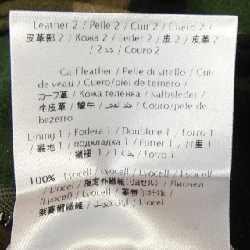 Leather 2 / Pelle 2 / Cuir 2 / Cuero 2 /
皮革部 2 / Кожа 2 / Leder 2 / 皮 2 / 皮革
2 / جلد 2 / Couro 2
Calf leather / Pelle di vitello / Cuir
de veau / Cuero/piel de ternero /
カーフ革 / Кожа телёнка / Kalbsleder /
牛皮革 / 犢牛 / / Couro/pele de
bezerro
Lining 1 / Fodera 1 / Doublure 1 / Forro 1
/ 裏地 1 / подкладка 1 / Futter 1 / 衬里
1 / 襯裡 1 / / Forro 1
100% Lyocell / Lyocell / Lyocell /
Lyocell / 指定外繊維(リヨセル) /
Lyocell / 莱赛尔纤维 /
/ Lyocell